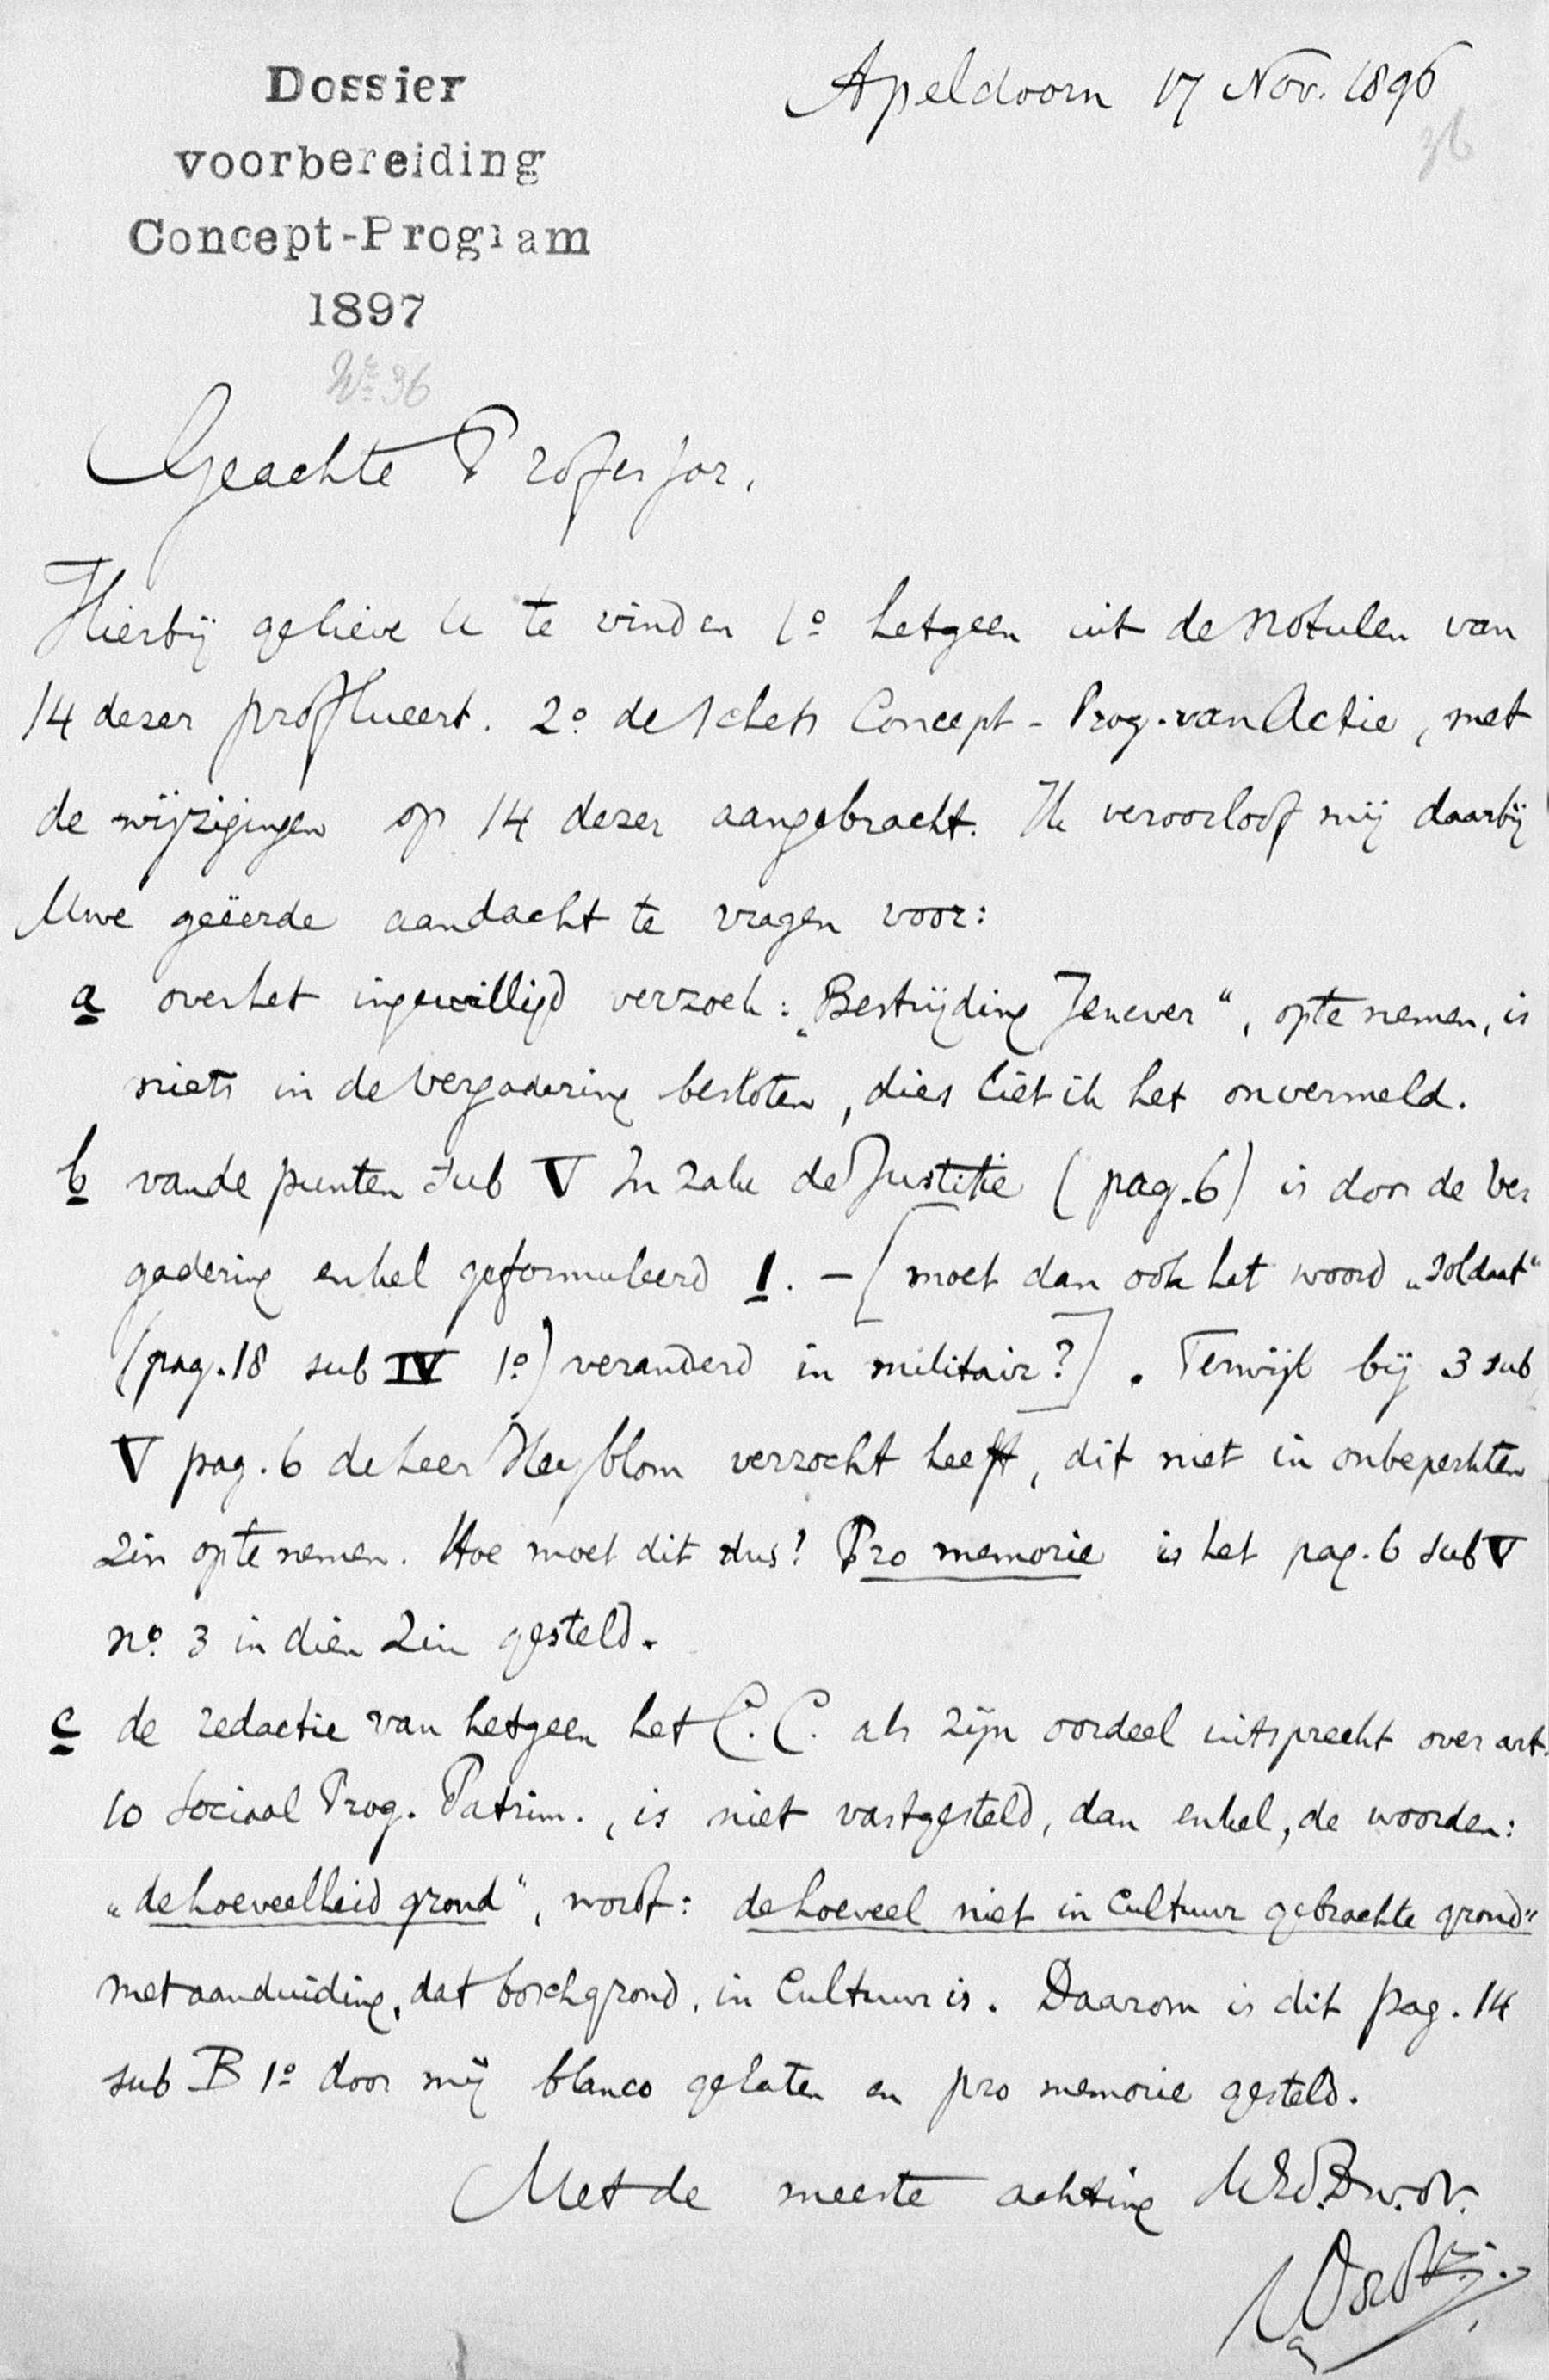 Dossier
voorbereiding
Concept-Program
1897
No 36
Apeldoorn 17 Nov. 1896
36
Geachte Professor,
Hierbij gelieve U te vinden 1o hetgeen uit de Notulen van
14 dezer proflueert. 2o de schets Concept-Prog. van Actie, met
de wijzigingen op 14 dezer aangebracht. Ik veroorloof mij daarbij
Uwe geëerde aandacht te vragen voor:
a over het ingewilligd verzoek: „Bestrijding Jenever“, op te nemen, is
niets in de Vergadering besloten, dies liet ik het onvermeld.
b van de punten sub V In zake de Justitie (pag. 6) is door de Ver
gadering enkel geformuleerd 1. – [moet dan ook het woord „soldaat“
(pag. 18 sub IV 1o) veranderd in militair?]. Terwijl bij 3 sub
V pag. 6 de heer Heyblom verzocht heeft, dit niet in onbeperkten
zin op te nemen. Hoe moet dit dus? Pro memorie is het pag. 6 sub V
no. 3 in dien zin gesteld.
c de redactie van hetgeen het C.C. als zijn oordeel uitspreekt over art.
10 Sociaal Prog. Patrim., is niet vastgesteld, dan enkel, de woorden:
„de hoeveelheid grond“, wordt: de hoeveel niet in cultuur gebrachte grond“
met aanduiding, dat boschgrond, in Cultuur is. Daarom is dit pag. 14
sub B 1o door mij blanco gelaten en pro memorie gesteld.
Met de meeste achting